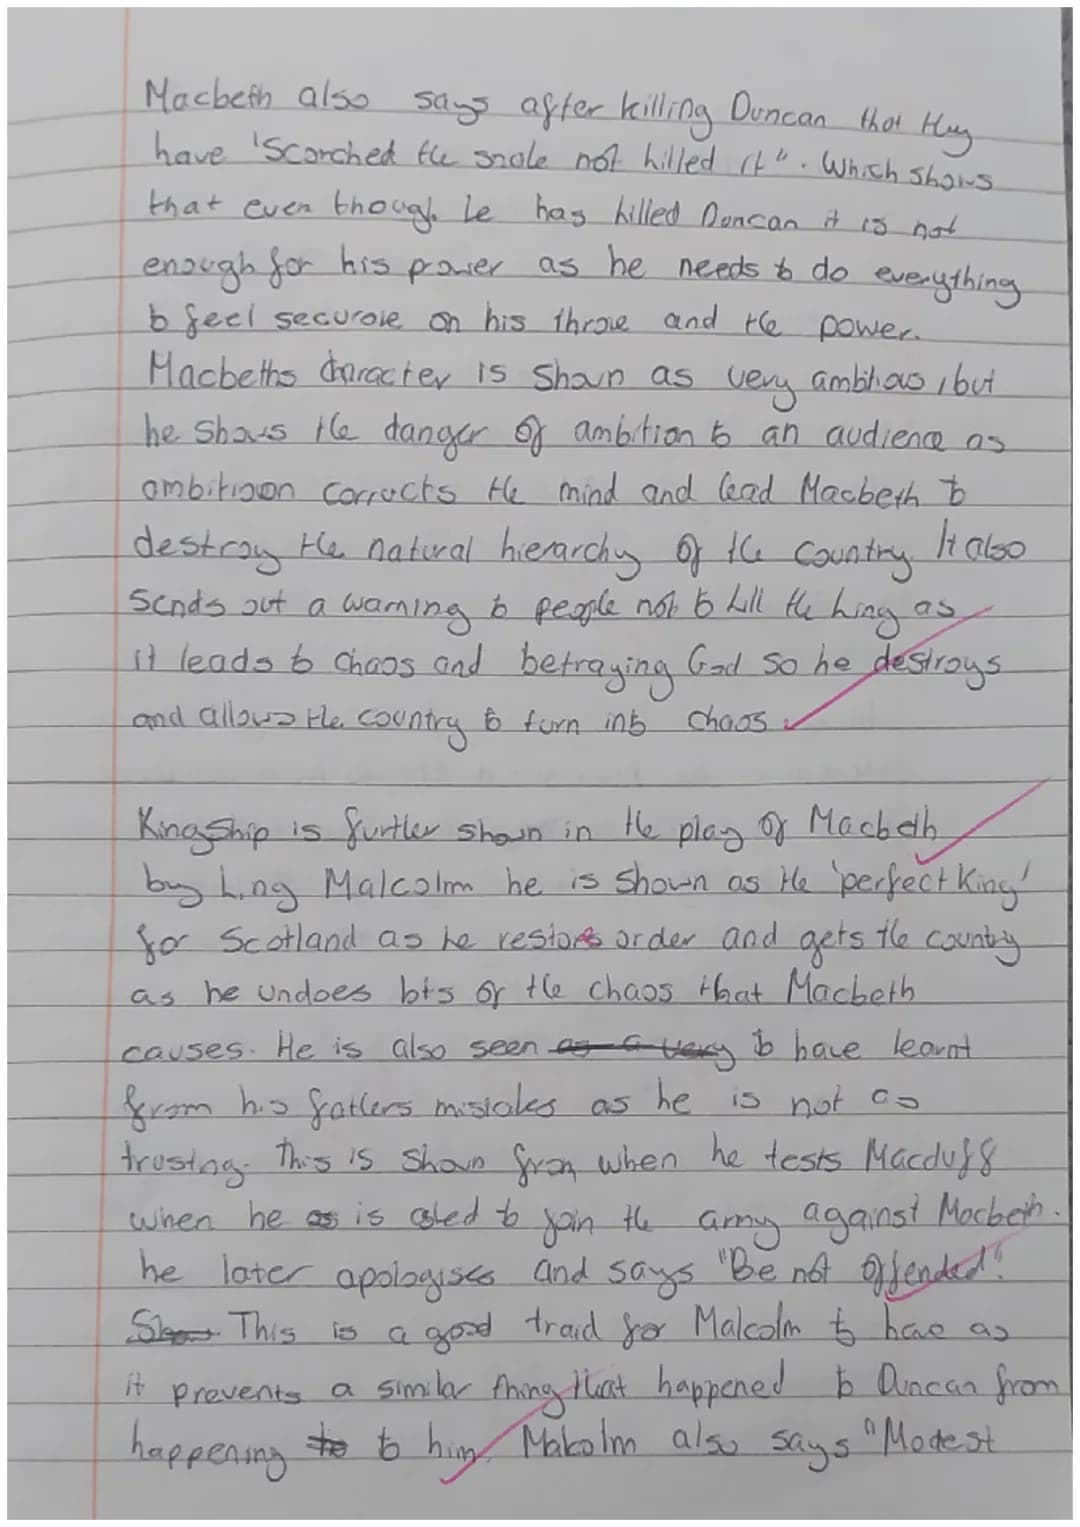 Macbeth also says after killing Duncan that they
have 'Scorched the snake not killed it". Which shows
that even though he has killed Duncan it is not
enough for his power as he needs to do everything
to feel securoie on his throne and the power.
Macbeths character is shown as very ambitious, but
he shows the danger of ambition to an audience as
ambitioon corructs the mind and lead Macbeth to
destroy the natural hierarchy of the country. It also
sends out a warning to people not to kill the king as
it leads to chaos and betraying God so he destroys
and allows the country to turn into chaos.
Kingship is further shown in the play of Macbeth
by king Malcolm he is shown as the 'perfect King'
for Scotland as he restores order and gets the country
as he undoes lots of the chaos that Macbeth
causes. He is also seen as a very to have learnt
from his fathers mistakes as he is not as
trusting. This is shown from when he tests Macduff
when he as is asked to join the army against Macbeth.
he later apologises and says "Be not offended".
This is a good traid for Malcolm to have as
it prevents a similar thing that happened to Duncan from
happening to to him. Malcolm also says "Modest